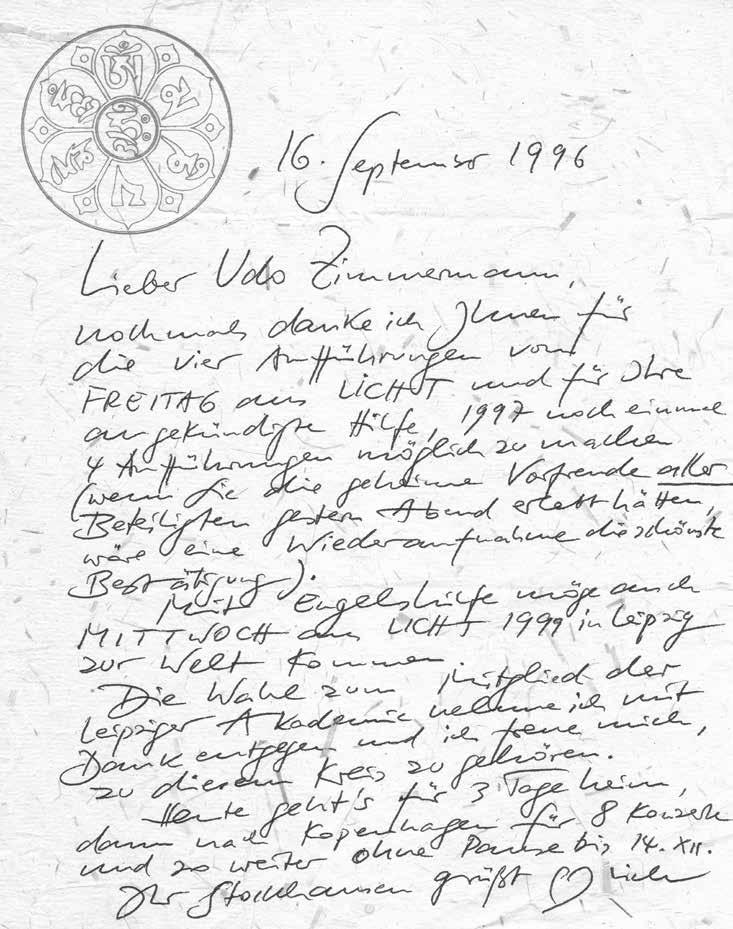 16. September 1996
Lieber Udo Zimmermann,
nochmals danke ich Ihnen für
die vier Aufführungen vom
FREITAG aus LICHT und für Ihre
angekündigte Hilfe, 1997 noch einmal
4 Aufführungen möglich zu machen
(wenn Sie die geheime Vorfreude aller
Beteiligten gestern Abend erlebt hätten,
wäre eine Wiederaufnahme die schönste
Bestätigung).
Mit Engelshilfe möge auch
MITTWOCH aus LICHT 1999 in Leipzig
zur Welt kommen.
Die Wahl zum Mitglied der
Leipziger Akademie nehme ich mit
Dank entgegen und ich freue mich,
zu diesem Kreis zu gehören.
Heute geht's für 3 Tage heim,
dann nach Kopenhagen für 8 Konzerte
und so weiter ohne Pause bis 14. XII.
Ihr Stockhausen grüßt ♡lich